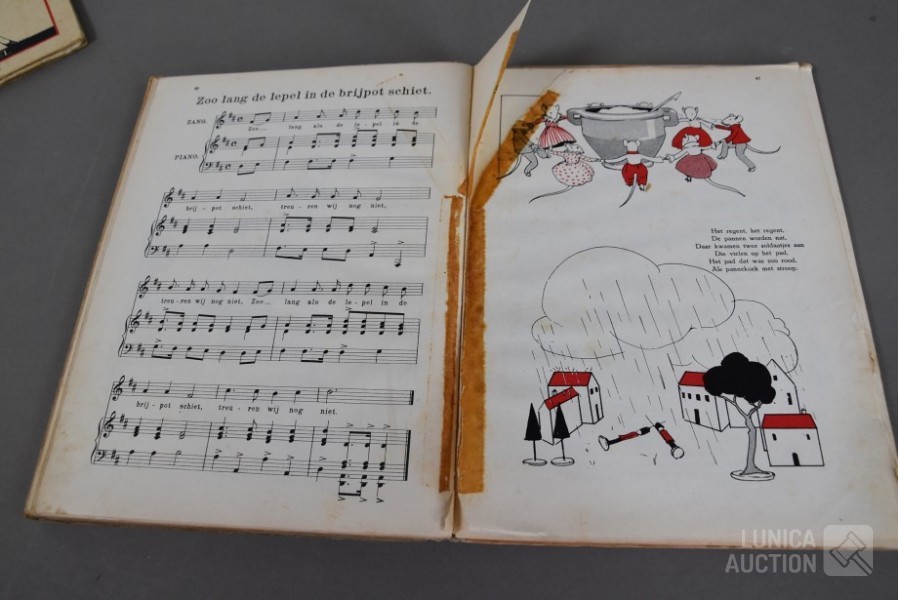 Zoo lang de lepel in de brijpot schiet.
ZANG.
Zoo__ lang als de le - pel in de
PIANO.
brij - pot schiet, treu - ren wij nog niet,
treu - ren wij nog niet, Zoo__ lang als de le - pel in de
brij - pot schiet, treu - ren wij nog niet.
Het regent, het regent,
De pannen worden nat,
Daar kwamen twee soldaatjes aan
Die vielen op het pad,
Het pad dat was zoo rood,
Als pannekoek met stroop.
LUNICA
AUCTION